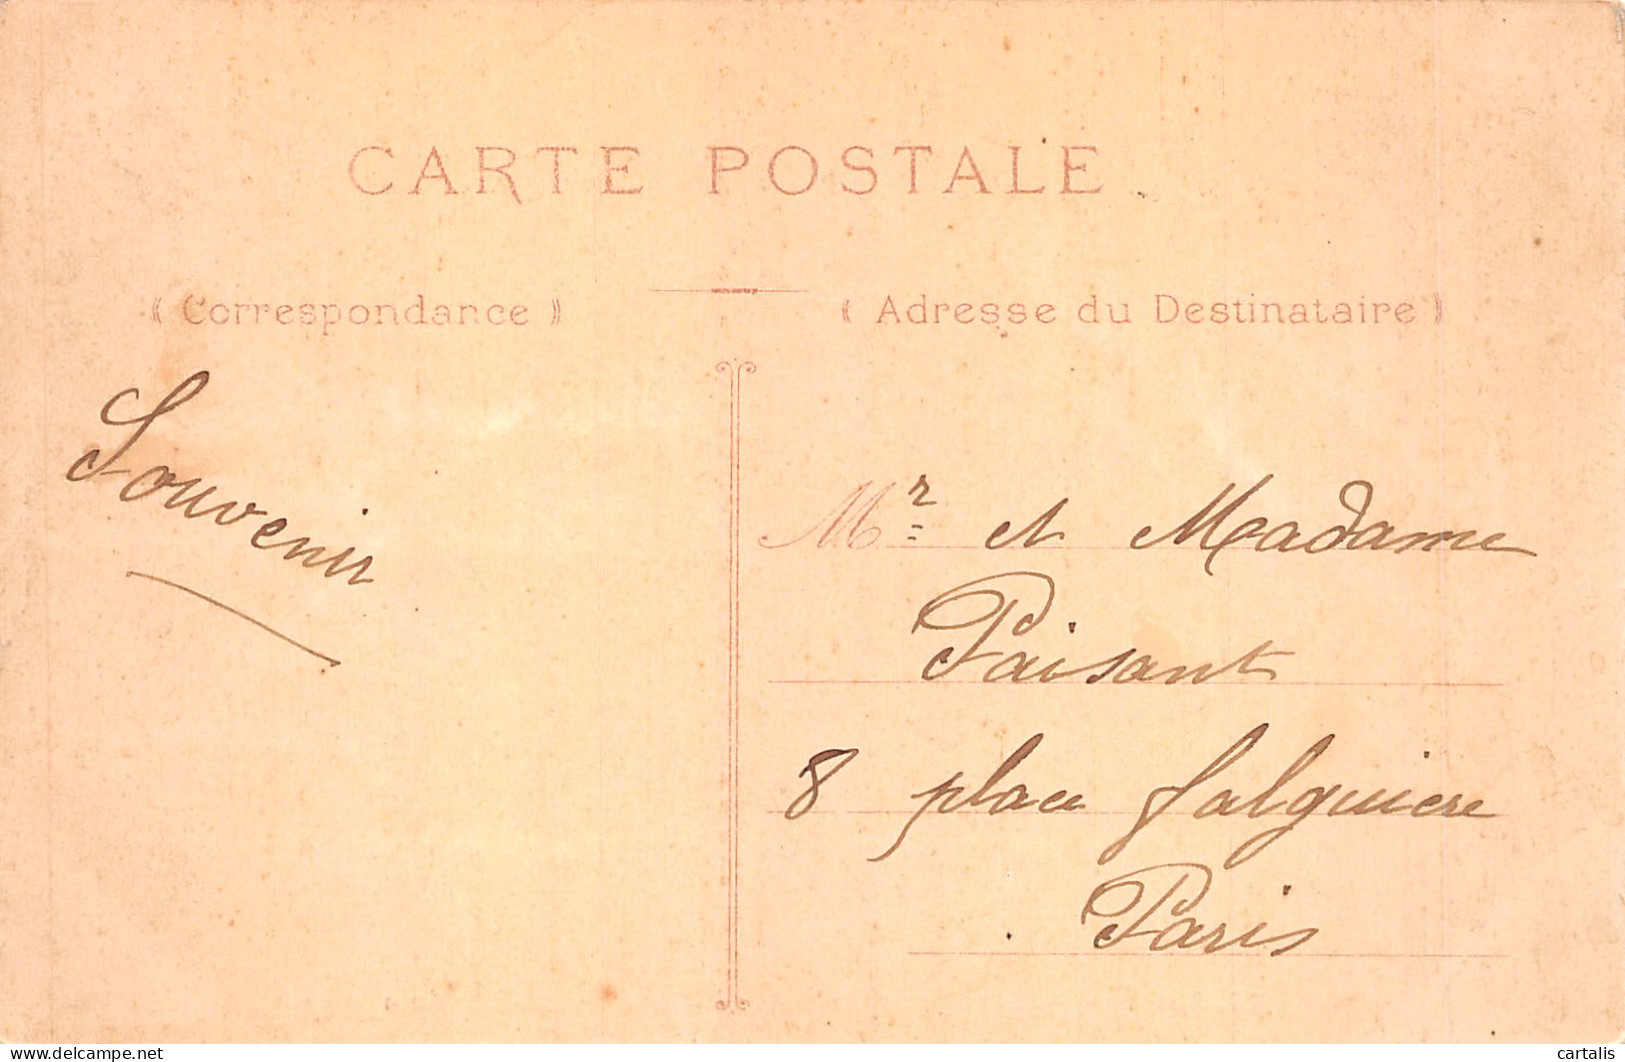 CARTE POSTALE
⟪ Correspondance ⟫
⟪ Adresse du Destinataire ⟫
Souvenir
Mr et Madame
Paisant
8 place falguiere
Paris
delcampe.net
cartalis